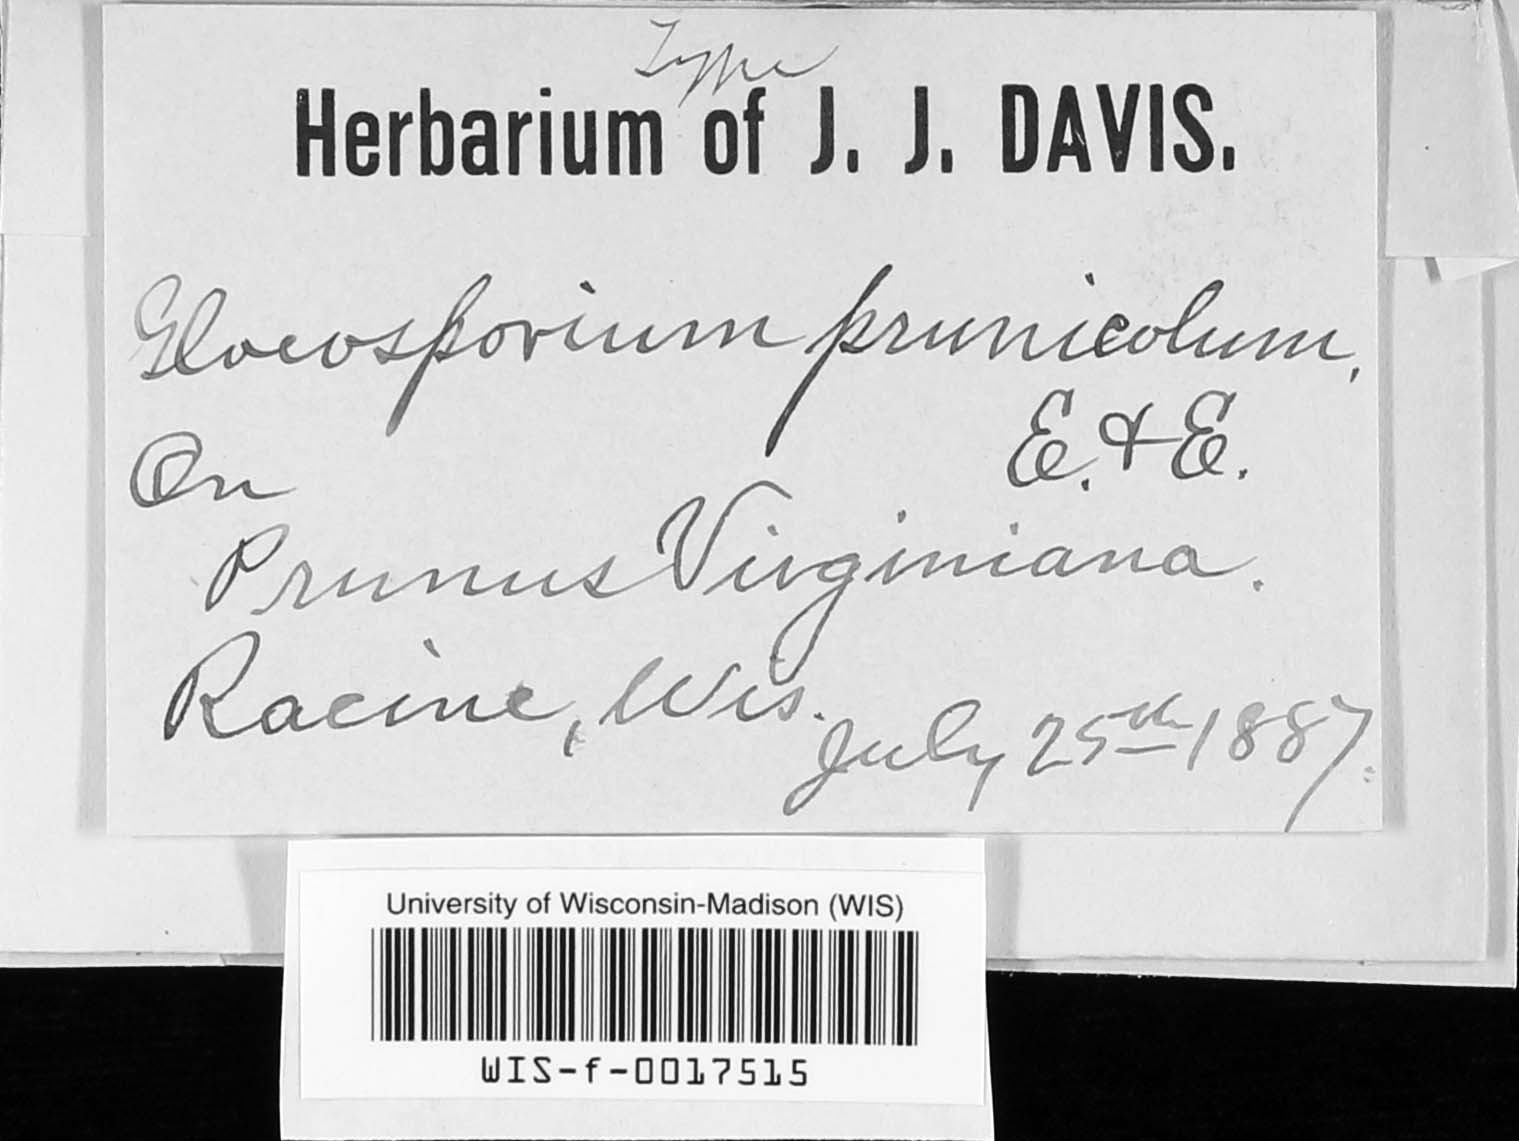 Type
Herbarium of J. J. DAVIS.
Gloeosporium prunicolum,
E. & E.
On
Prunus Virginiana.
Racine, Wis.
July 25th 1887.
University of Wisconsin-Madison (WIS)
WIS-f-0017515